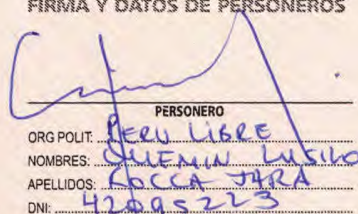 FIRMA Y DATOS DE PERSONEROS
PERSONERO
ORG POLIT: PERU LIBRE
NOMBRES: LUSILO
APELLIDOS: ROCCA JARA
DNI: 42095223